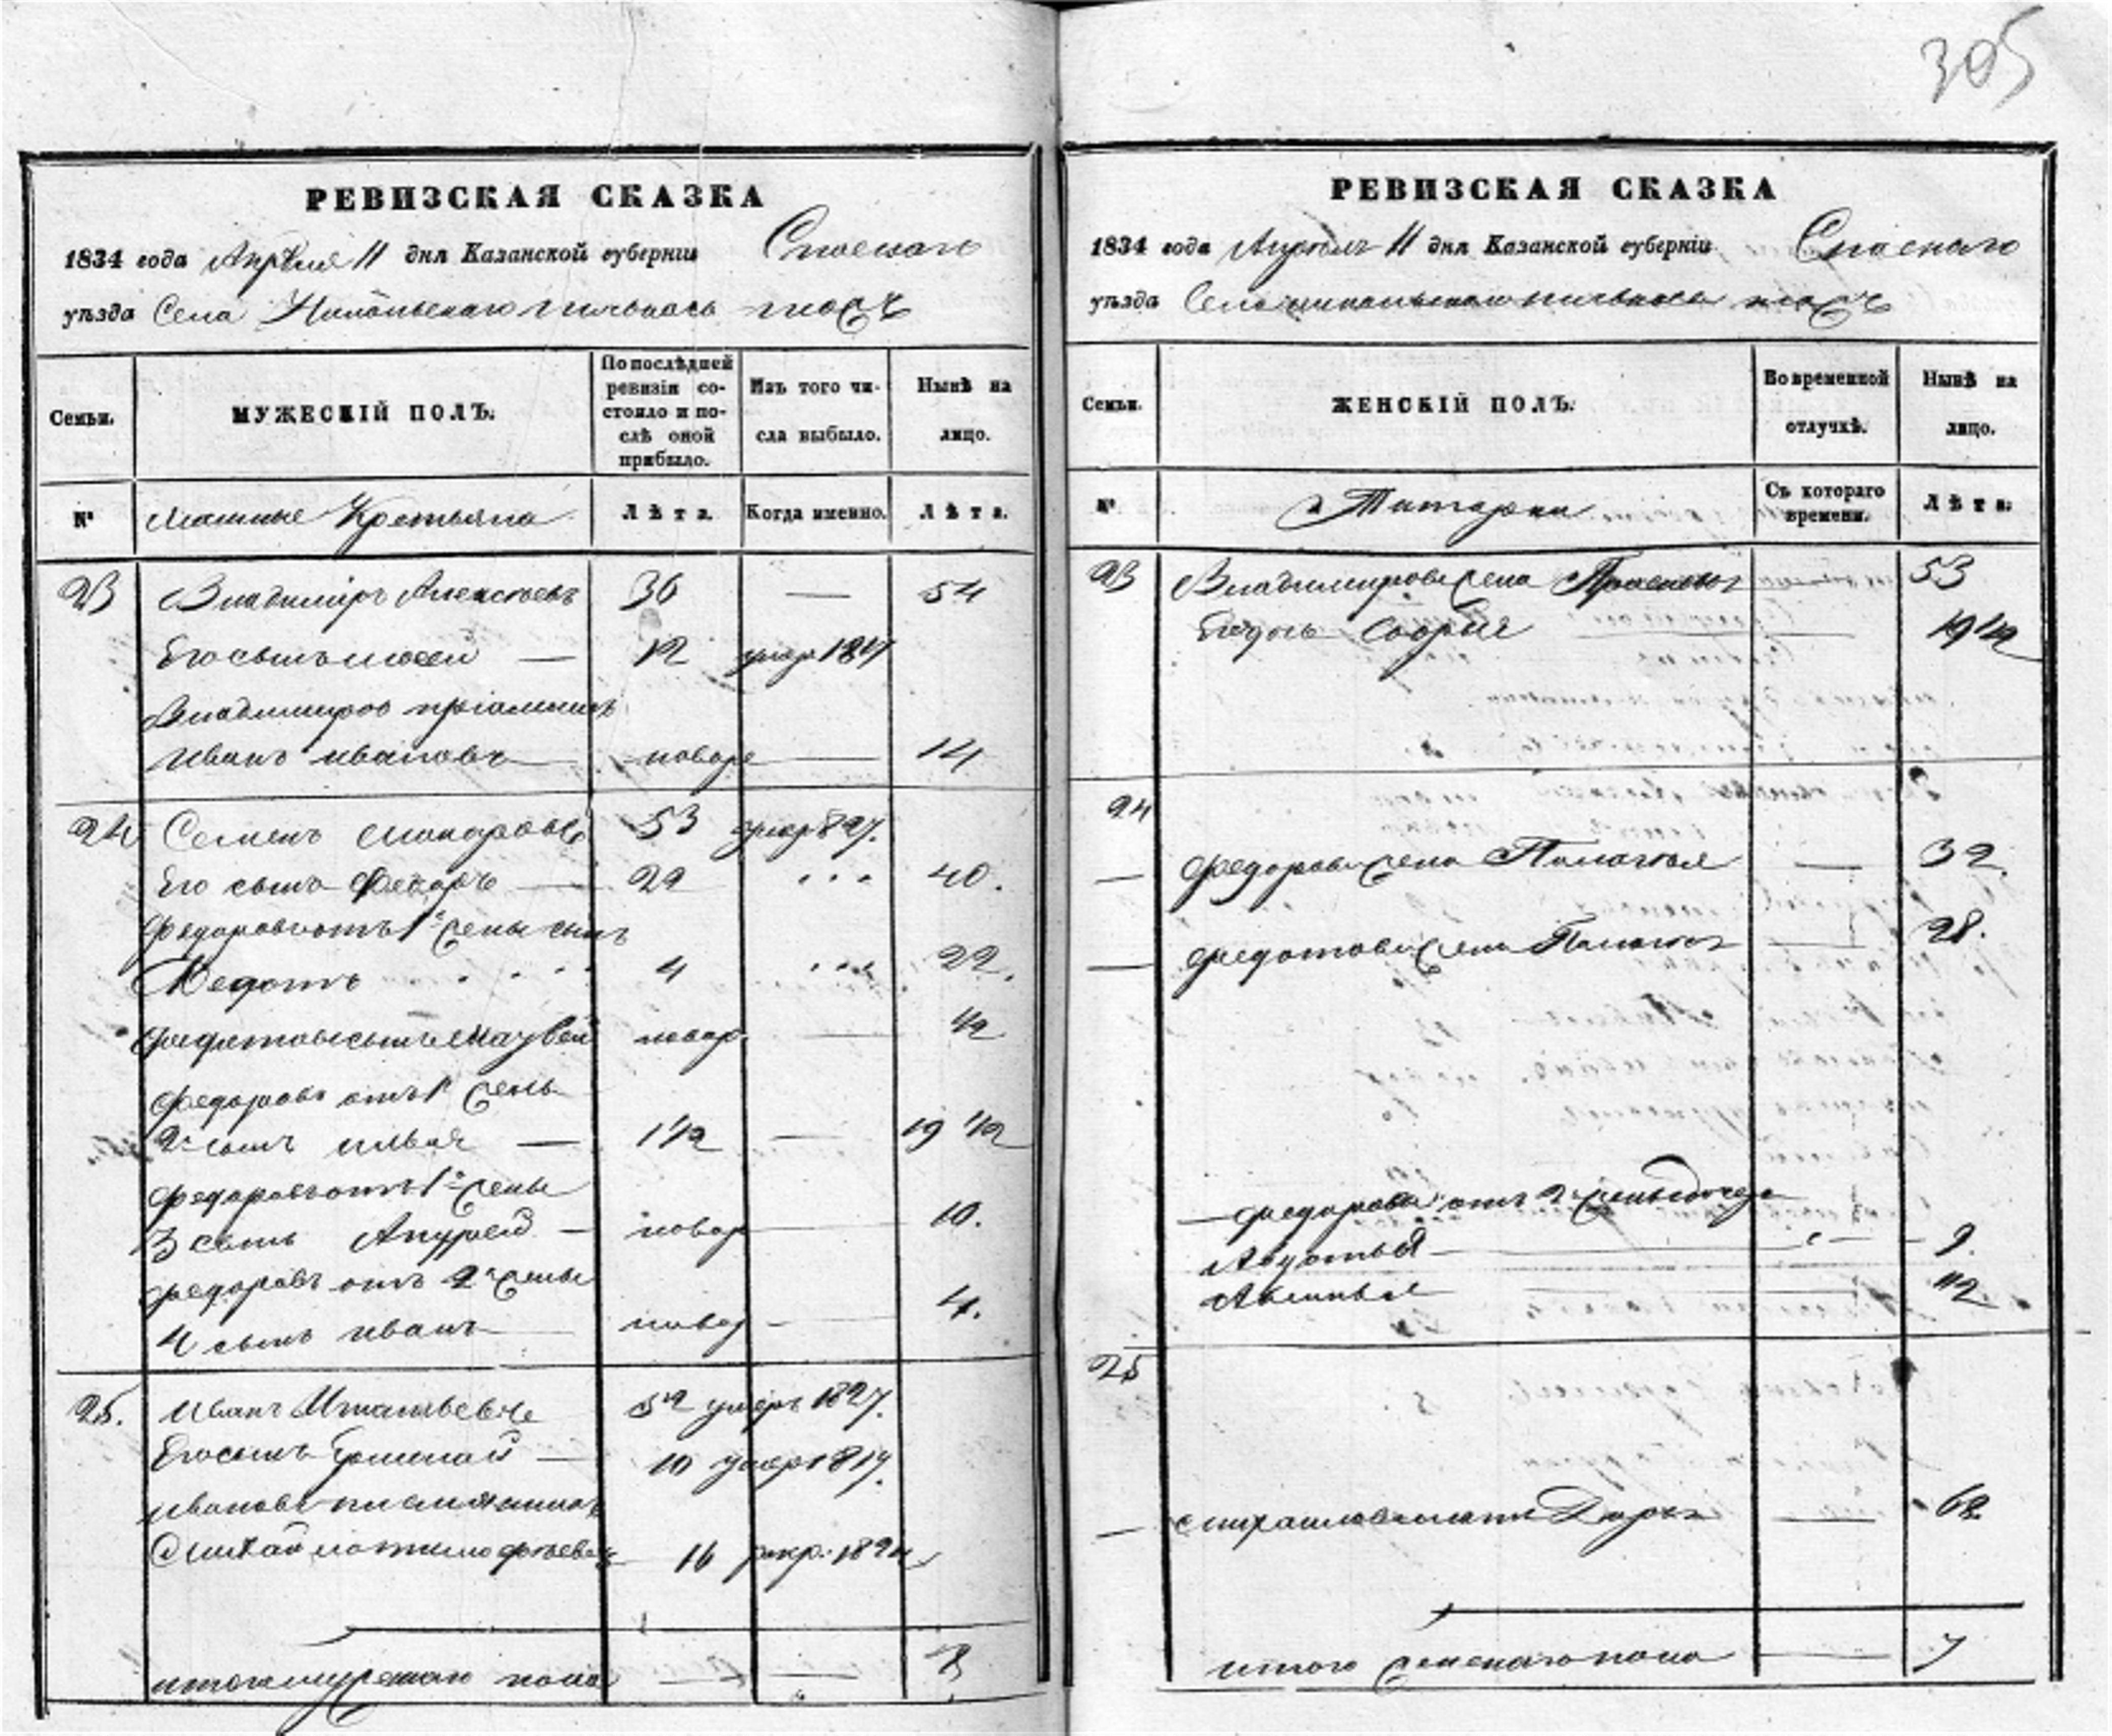 305
РЕВИЗСКАЯ СКАЗКА
1834 года Апреля 11 дня Казанской губерніи Спаскаго
уѣзда Села Никольскаго
Семьи.
МУЖЕСКІЙ ПОЛЪ.
По послѣдней ревизіи со-
стояло и по-
слѣ оной
прибыло.
Изъ того чи-
сла выбыло.
Нынѣ на
лицо.
№
Крестьяна
Лѣта.
Когда именно.
Лѣта.
23 Владимиръ Алексѣевъ 36 — 54
Его сынъ 12 умер 18
Владимиров пріемышъ
Иванъ Ивановъ — новоро — 14
24 Семенъ 53 умер 827.
Его сынъ Федоръ — 22 40.
Федоров от 1й жены сынъ
Федотъ 4 22.
Федотов сынъ новор. — 1/2
Федоровъ от 1й жены
2й сынъ Илья — 1 1/2 — 19 1/2
Федоровъ от 1й жены
3 сынъ Андрей — новор — 10.
Федоровъ от 2й жены
4 сынъ Иванъ — новор — 4.
25. Иванъ 52 умеръ 1827.
Его сынъ — 10 умер 1817.
Ивановъ племянникъ
Михайло Тимофѣевъ 16 рекр. 182
итого мужескаго пола — — 8
РЕВИЗСКАЯ СКАЗКА
1834 года Апреля 11 дня Казанской губерніи Спаскаго
уѣзда Села Никольскаго
Семьи.
ЖЕНСКІЙ ПОЛЪ.
Во временной
отлучкѣ.
Нынѣ на
лицо.
№
Съ котораго
времени.
Лѣта.
23 Владимирова жена — 53
Его дочь Софья — 19 1/2
24
— Федорова жена Палагѣя — 32.
— Федотова жена — 28.
— Федорова от 2 жены дочери
Авдотья — 9.
Аксинья — 1/2
25
— Михаилова мати Дарья — 62
итого женскаго пола — 7